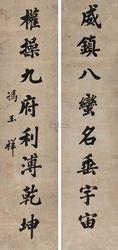 威鎮八蠻名垂宇宙
權操九府利溥乾坤
馮玉祥